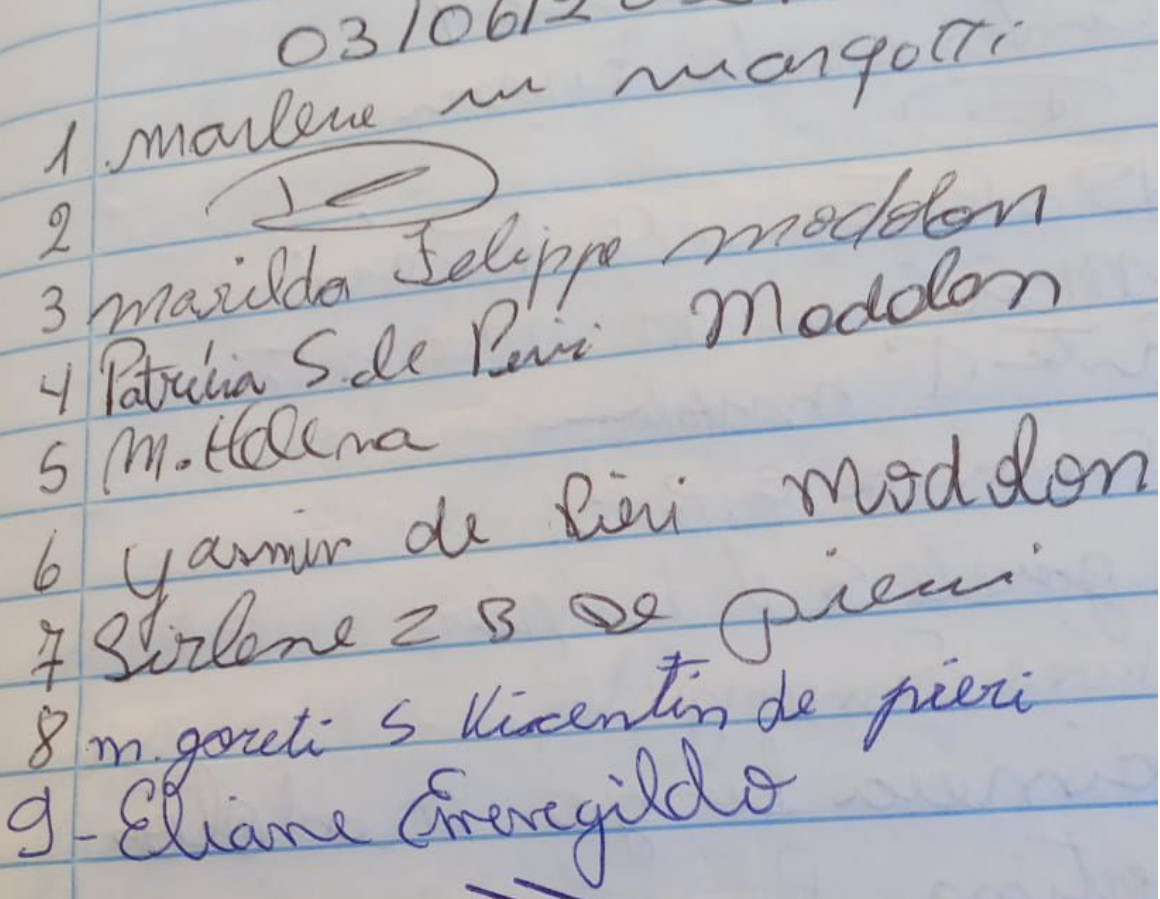 03/06/20
1. Marlene m margotti
2
3 Marilda Felippe modolon
4 Patrícia S. de Pieri Modolon
5 M. Helena
6 Yasmin de Pieri Modolon
7 Sirlene Z B De Pieri
8 m. goreti S Vicentin de pieri
9 - Eliane Emeregildo